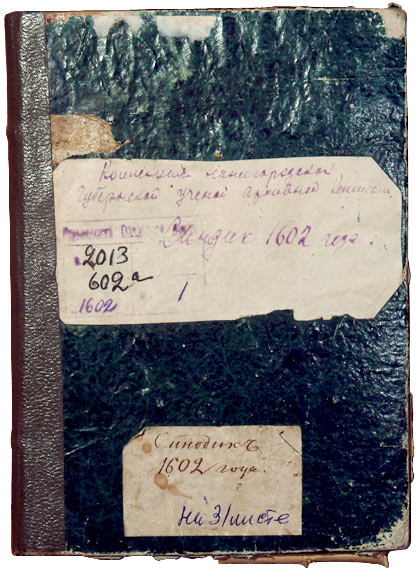 Коллекция нижегородской
губернской ученой архивной
Синдик 1602 года.
2013
602а
1602
1
Синодикъ
1602 года.
На 31 листе